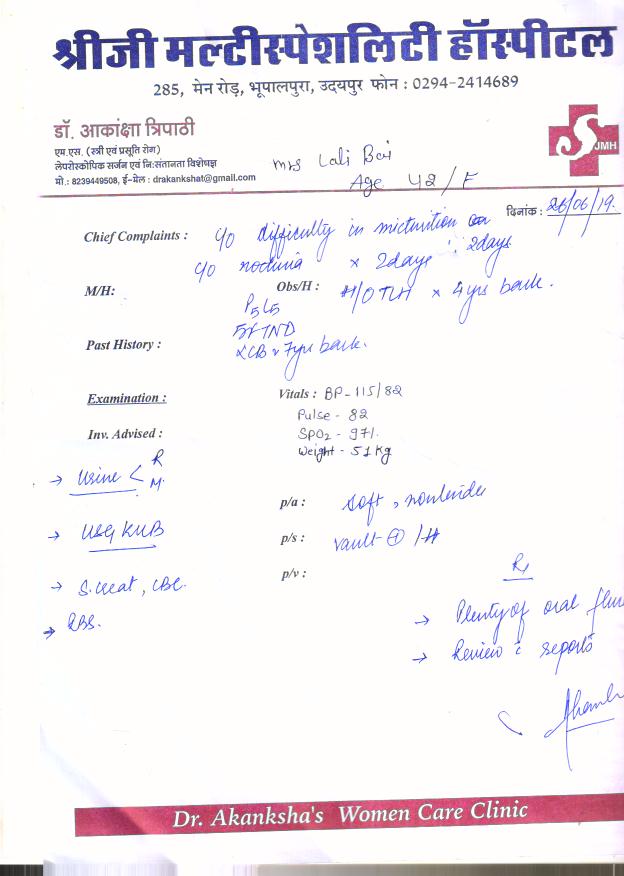 श्रीजी मल्टीस्पेशलिटी हॉस्पीटल
285, मेन रोड़, भूपालपुरा, उदयपुर फोन : 0294-2414689
डॉ. आकांक्षा त्रिपाठी
एम.एस. (स्त्री एवं प्रसूति रोग)
लेपरोस्कोपिक सर्जन एवं नि:संतानता विशेषज्ञ
मो.: 8239449508, ई-मेल : drakankshat@gmail.com
SJMH
Mrs Lali Bai
Age 42/F
दिनांक : 26/06/19.
Chief Complaints : C/O difficulty in micturition 2days
C/O nocturia x 2days
M/H:
Obs/H : H/O TLH x 4yrs back.
P5L5
5FTND
Past History : LCB x 7yrs back.
Examination :
Vitals : BP-115/82
Pulse - 82
SPO2 - 97%
Weight - 51 Kg
Inv. Advised :
→ Urine < R
M.
→ USG KUB
→ S.creat, CBC.
→ RBS.
p/a : soft, nontender
p/s : vault
p/v :
Rx
→ Plenty of oral
→ Review c reports
Dr. Akanksha's Women Care Clinic